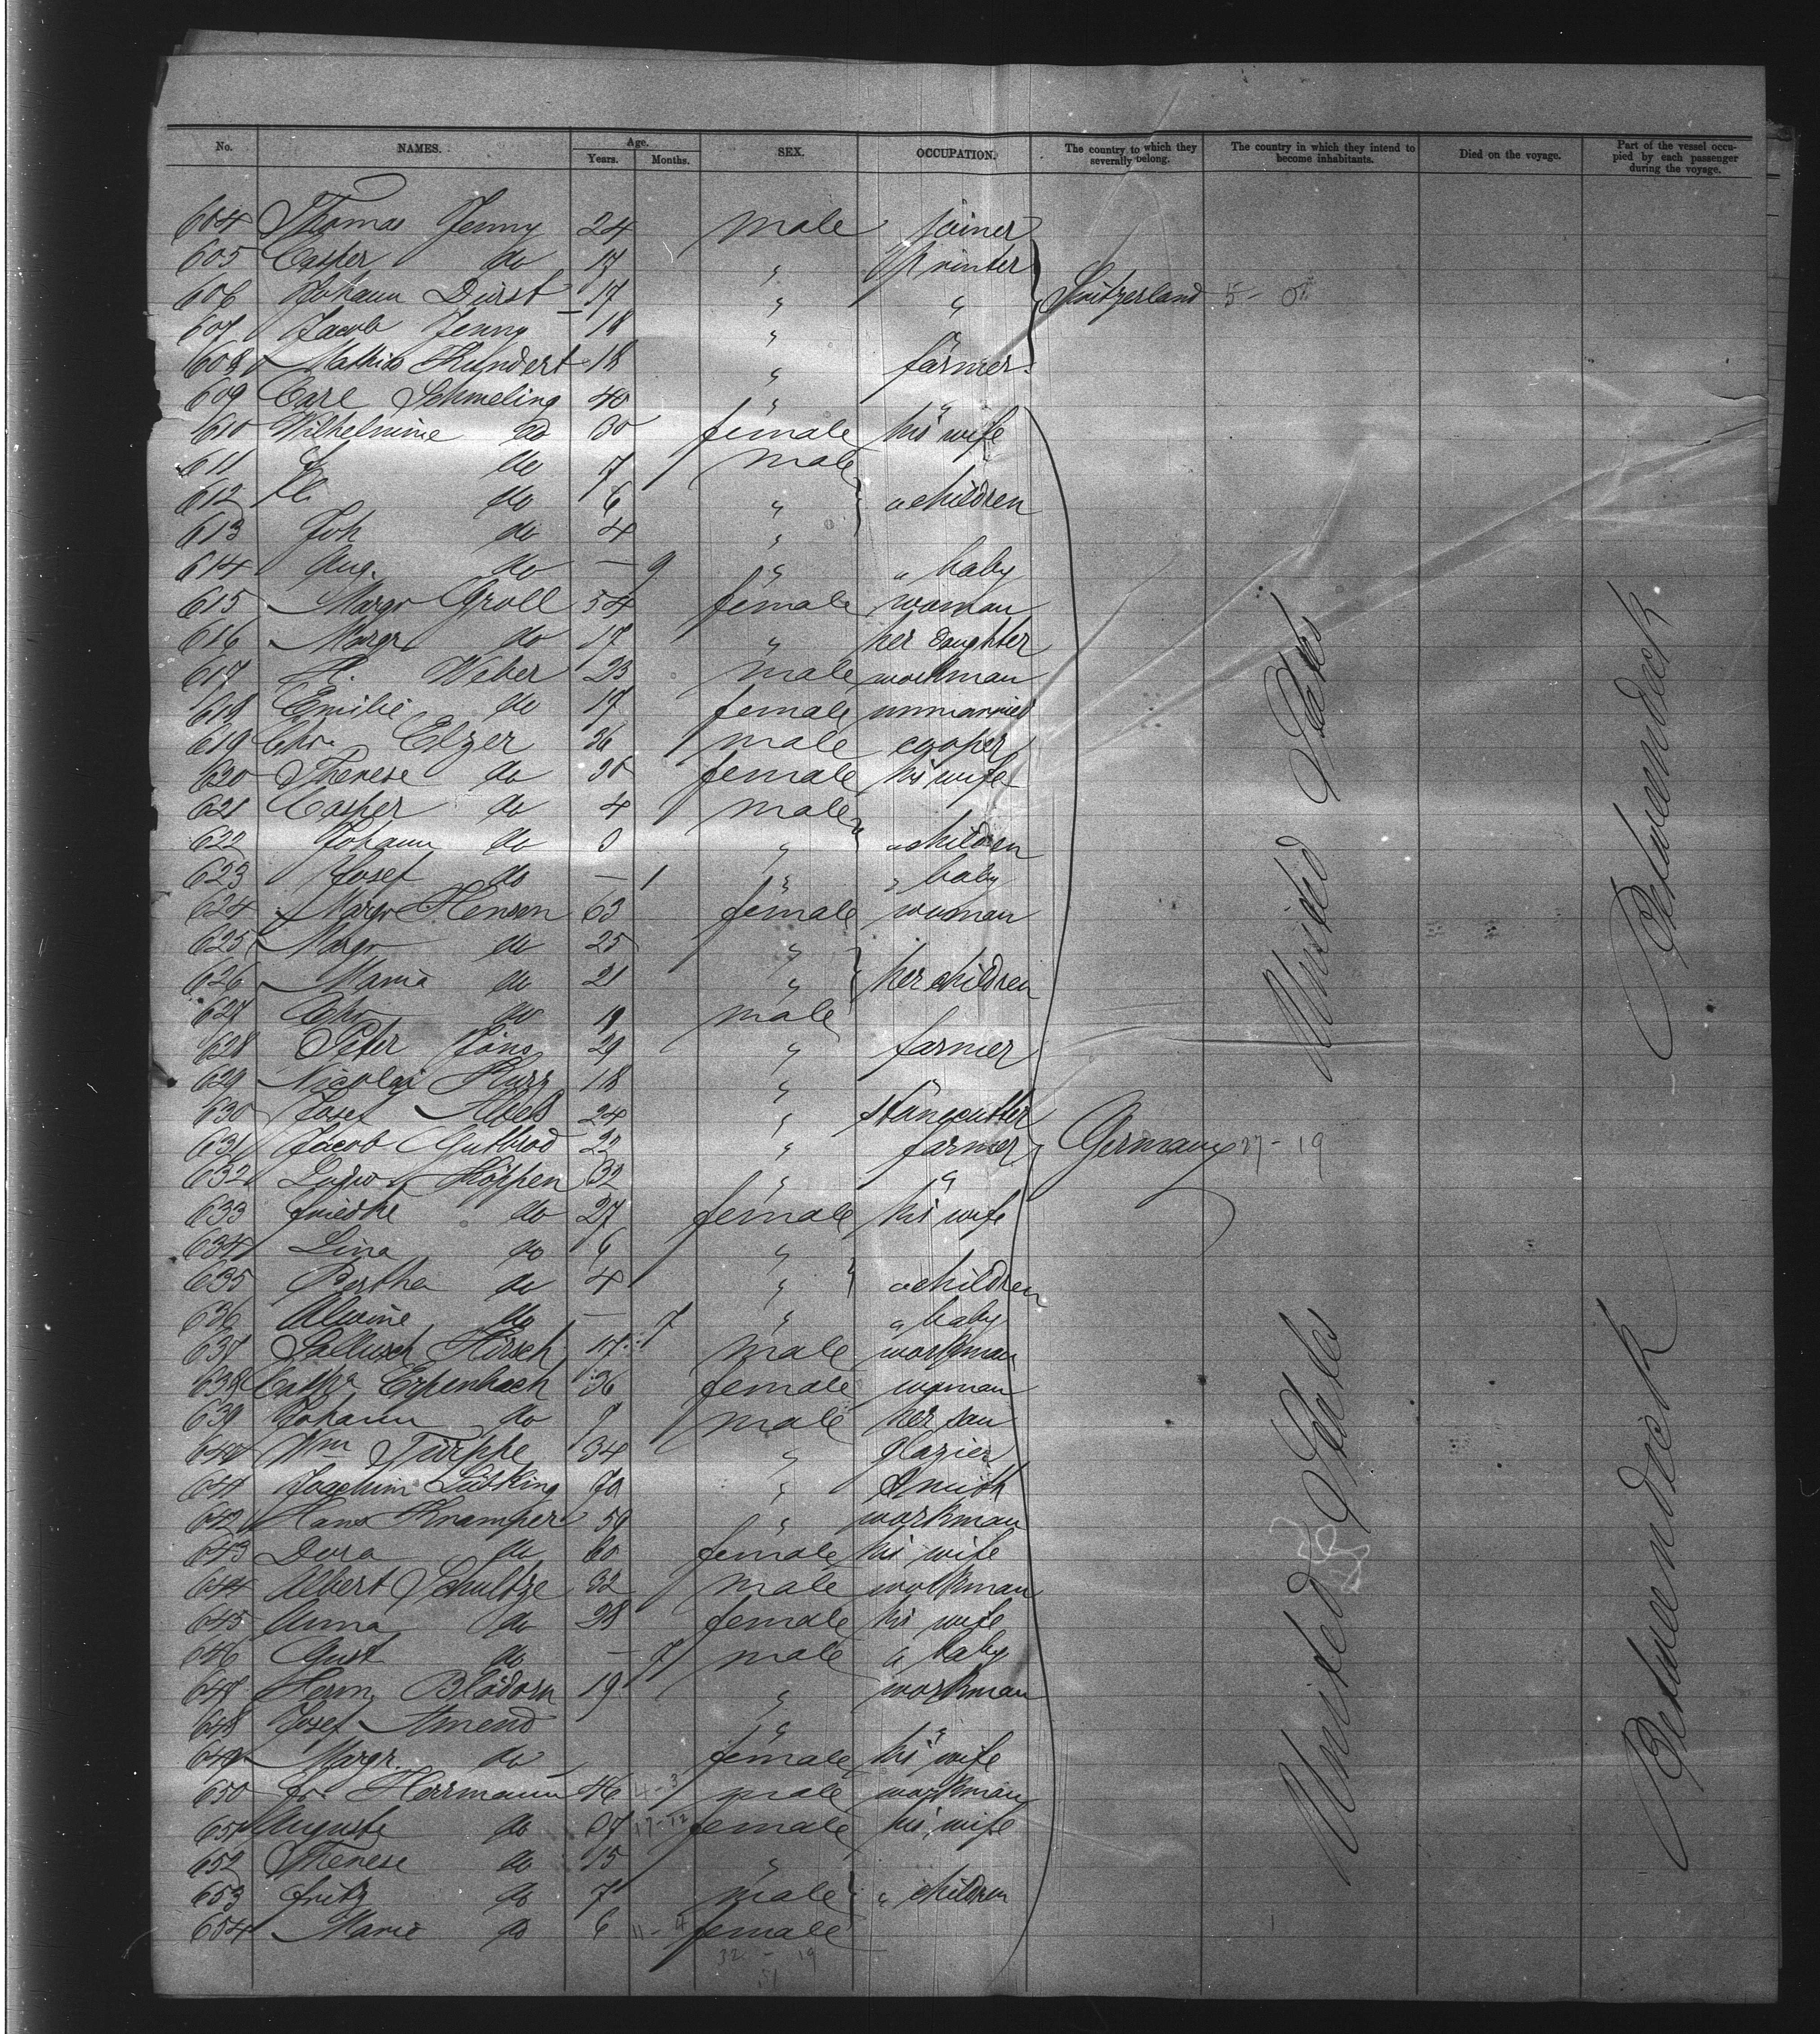 No. NAMES. Age. Years. Months. SEX. OCCUPATION. The country to which they severally belong. The country in which they intend to become inhabitants. Died on the voyage. Part of the vessel occupied by each passenger during the voyage.
604 Thomas Jenny 24 male joiner
605 Casper do 17 " printer
606 Johann Dürst 17 " " Switzerland 5-0
607 Jacob Jenny 18 " "
608 Mathias Kundert 18 " farmer
609 Carl Schmeling 40 " "
610 Wilhelmine do 30 female his wife
611 do 7 male
612 do 6 " " children
613 Joh do 4 "
614 Aug. do – 9 " " baby
615 Margr Groll 54 female woman
616 Margr do 17 " her daughter
617 A. Weber 23 male workman
618 Emilie do 17 female unmarried
619 Chr. Elzer 36 male cooper
620 Therese do 30 female his wife
621 Casper do 4 male
622 Johann do " " children
623 Josef do – 1 " " baby
624 Margr Hensen 63 female woman
625 Margr do 25 "
626 Maria do 21 " her children
627 Chr do 19 male
628 Peter Jöns 29 " farmer
629 Nicolai Kurz 18 "
630 Josef Abels 24 " stonecutter
631 Jacob Gutbrod 22 " farmer Germany 27-19
632 Ludw Köppen 32 " "
633 Friedke do 27 female his wife
634 Lina do 6 "
635 Bertha do 4 " " children
636 Alwine do – 7 " " baby
637 Hirsch 17 male workman
638 Cathr Erpenbach 36 female woman
639 Johann do 9 male her son
640 Wm Türppe 34 " glazier
641 Joachim Lübking 70 " Smith
642 Hans Knamper 59 " workman
643 Dora do 60 female his wife
644 Albert Schultze 32 male workman
645 Anna do 28 female his wife
646 Gust do – 7 male " baby
647 Herm. Blödorn 19 " workman
648 Josef Amend " "
649 Margr. do female his wife
650 Fr. Herrmann 46 4-3 male workman
651 Auguste do 37 17-12 female his wife
652 Therese do 15 "
653 Fritz do 7 male " children
654 Marie do 6 11-4 female
32 - 19
51
United States
United States
Betweendeck
Betweendeck